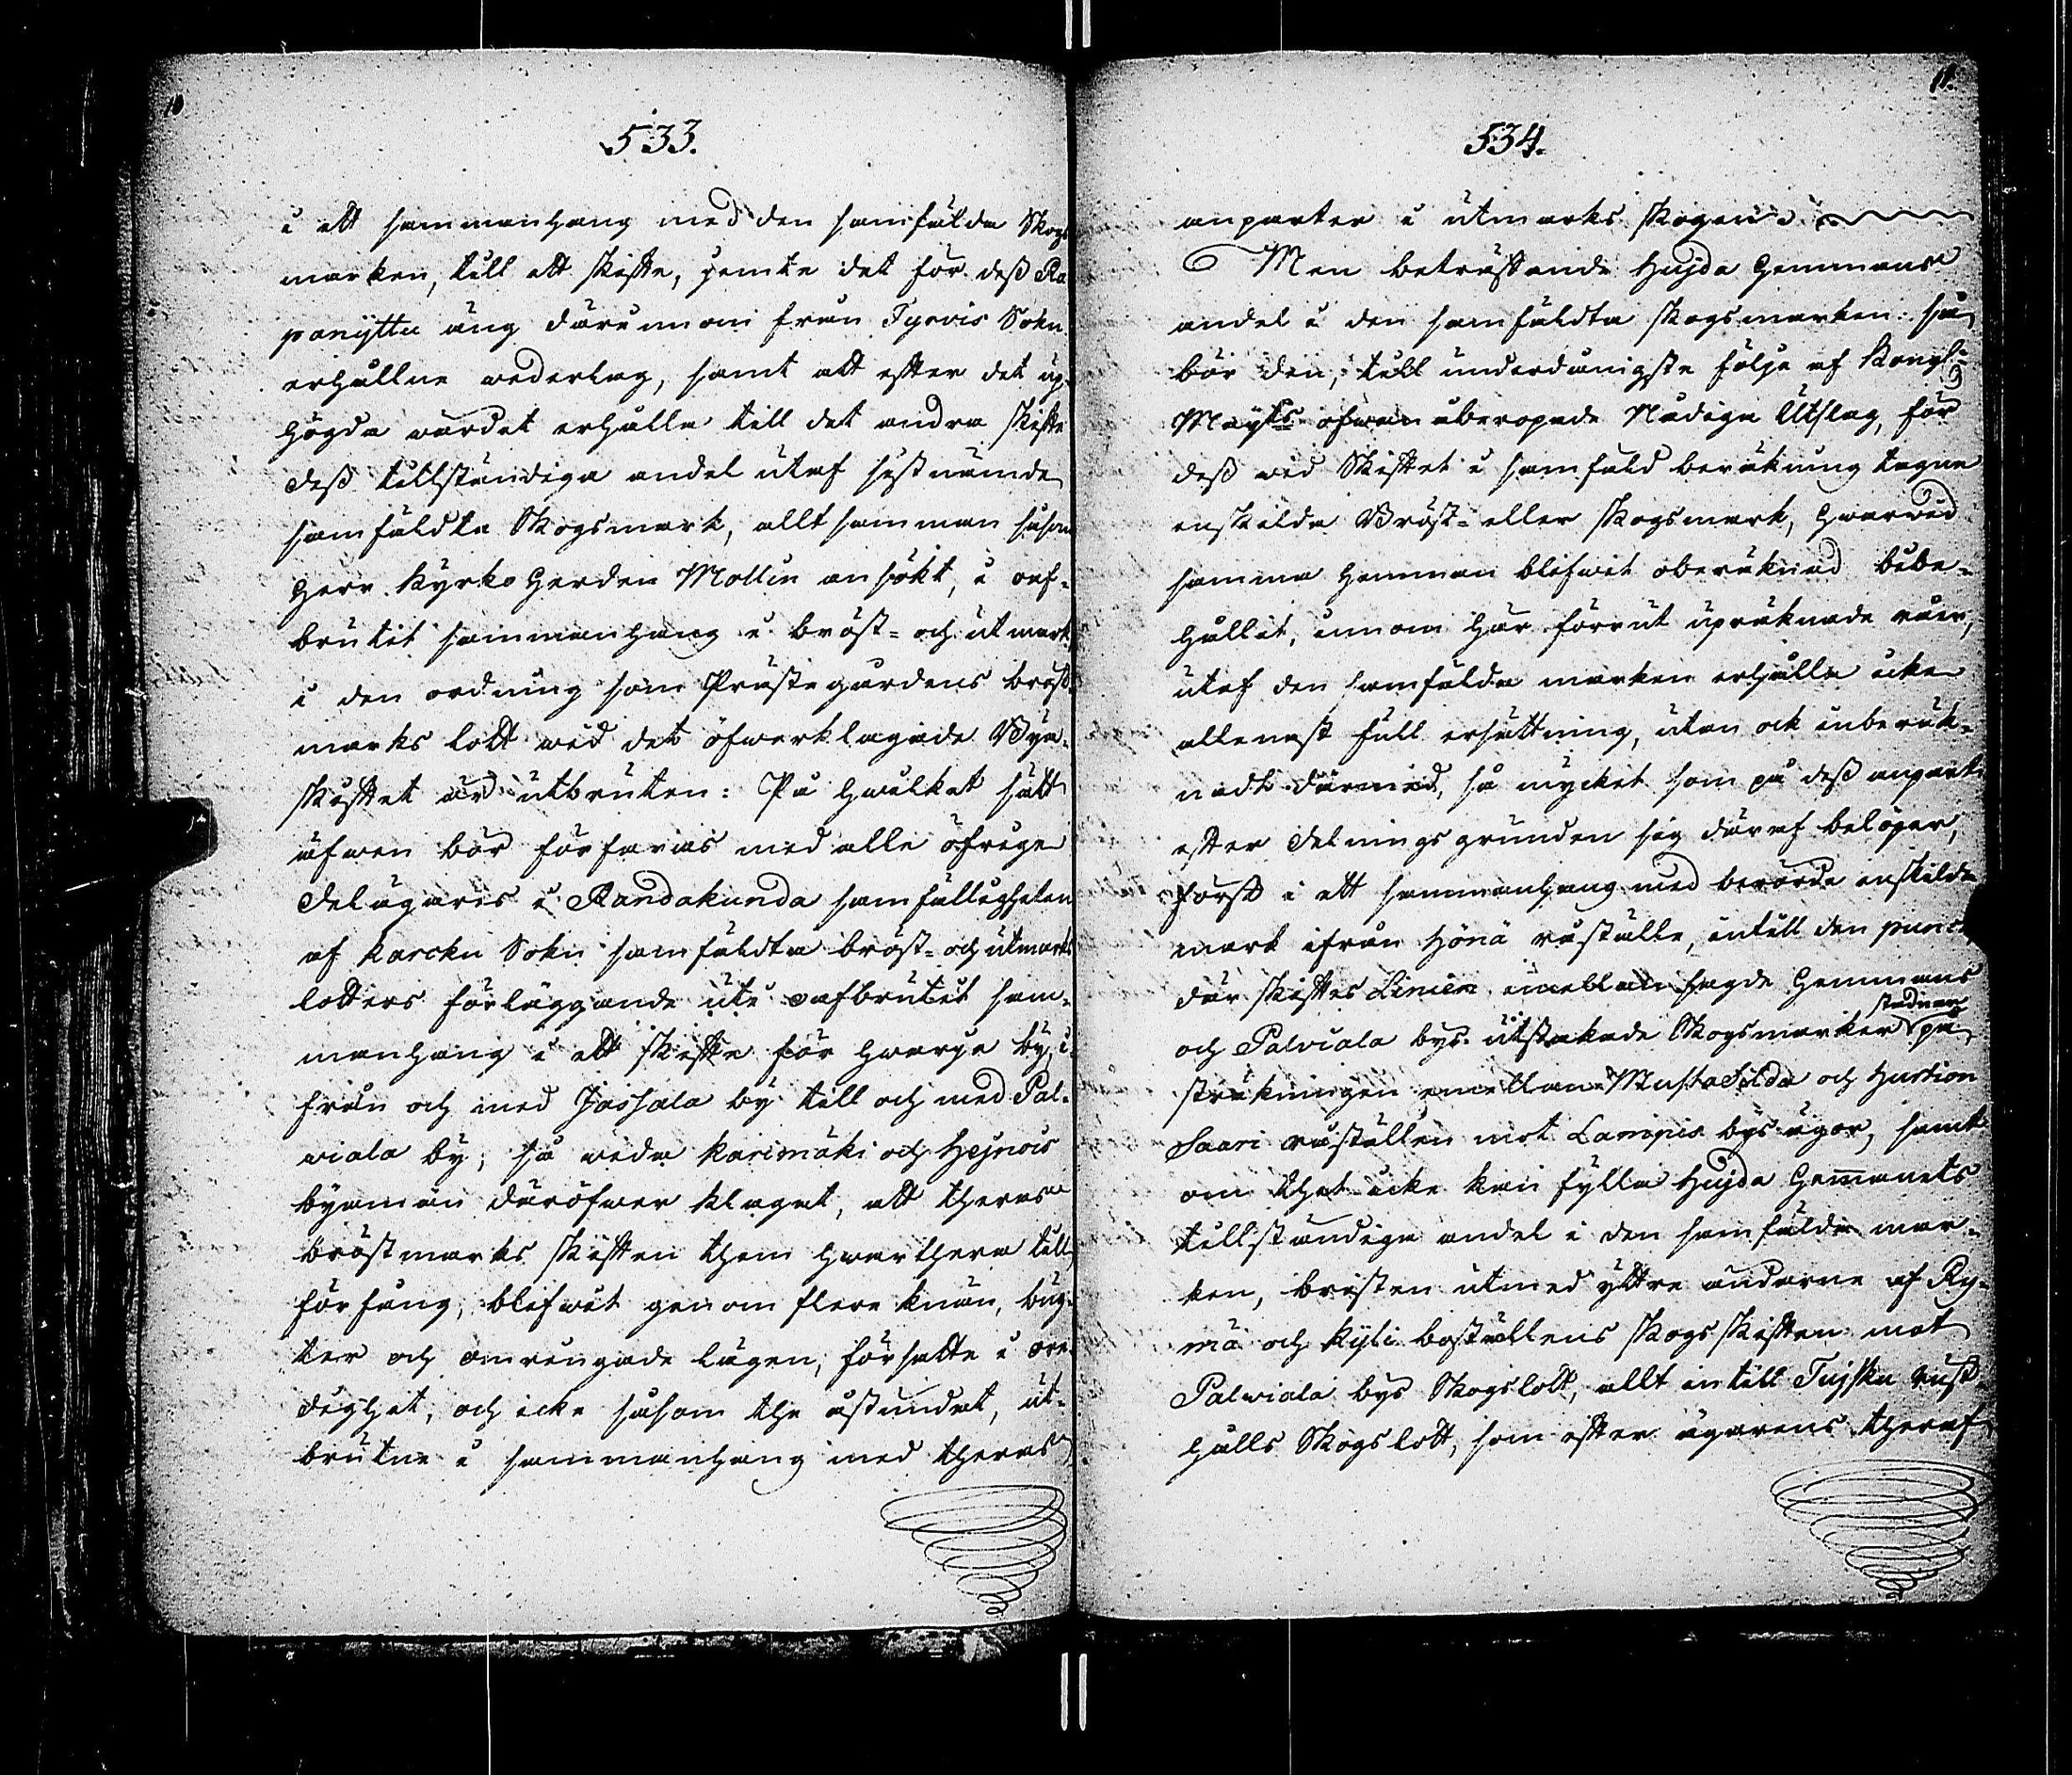 10
533.
i ett sammanhang med den samfälda Skogs
marken, till ett skifte, jemte det för dess Ra
panijttu äng därinnom från Tyrvis Sokn
erhållne wederlag, samt att efter det up-
högda wärdet erhålla till det andra skifte
dess tillständiga andel utaf sistnämde
samfäldta Skogsmark, allt samman såsom
Herr Kyrko Herden Mollin ansökt, i oaf-
brutit sammanhang i bröst- och utmark
i den ordning som Prästegårdens bröst-
marks lott wid det öfwerklagade Bya-
skiftet är utbruten: På hwilket sätt
äfwen bör förfaras med alle öfrige
Delägares i Randakunda samfälligheten
af Karcku Sokn samfäldta bröst- och utmarks
lotters förläggande uti oafbrutit sam-
manhang i ett skifte för hwarje by i-
från och med Jassala by till och med Pal-
wiala by; så wida Karimäki och Hejnois
byamän däröfwer klagat, att theras
bröstmarks skiften them hwarthera till
förfång, blifwit genom flere knän, bug-
ter och omringade lägen, försatte i ore-
dighet, och icke såsom the åstundat, ut-
brutne i sammanhang med theras
11.
534.
anparter i utmarks skogen
Men beträffande Hujda Hemmans
andel i den samfäldta skogsmarken: så
bör den, till underdånigste följe af Kongl:
Maijts ofwan åberopade Nådiga Utslag, för
dess wid Skiftet i samfäld beräkning tagne
enskilda Bröst- eller skogsmark, hwarwid
samma hemman blifwit oberäknad bibe-
hållit, innom här förrut upräknade råer,
utaf den samfälda marken erhålla icke
allenast full ersättning, utan ock inberäk-
nadt därmed, så mycket som på dess anpart
efter delnings grunden sig däraf belöper,
först i ett sammanhang med berörde enskilda
mark ifrån Hönä råställe, intill den punct
där skiftes Linien imellan sagde Hemmans
och Palviala bys utstakade Skogsmarker stadnar på
sträkningen emellan Mustasilda och Hurtion
Saari råställen mot Lampis bys ägor, samt
om thet icke kan fylla Hujda Hemmanets
tillständiga andel i den samfälde mar-
ken, bristen utmed yttre ändarne af Ry-
mä och Kyli boställens skogs skiften mot
Palwiala bys Skogslott, allt intill Tujsku rust-
hålls Skogslott, som efter ägarens theraf